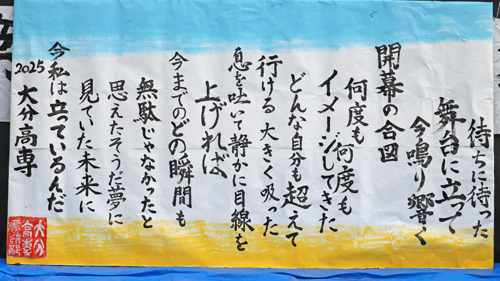 待ちに待った
舞台に立って
今鳴り響く
開幕の合図
何度も何度も
イメージしてきた
どんな自分も超えて
行ける 大きく吸った
息を吐いて静かに目線を
上げれば
今までのどの瞬間も
無駄じゃなかったと
思えたそうだ夢に
見ていた未来に
今私は立っているんだ
2025 大分高専
大分
高専